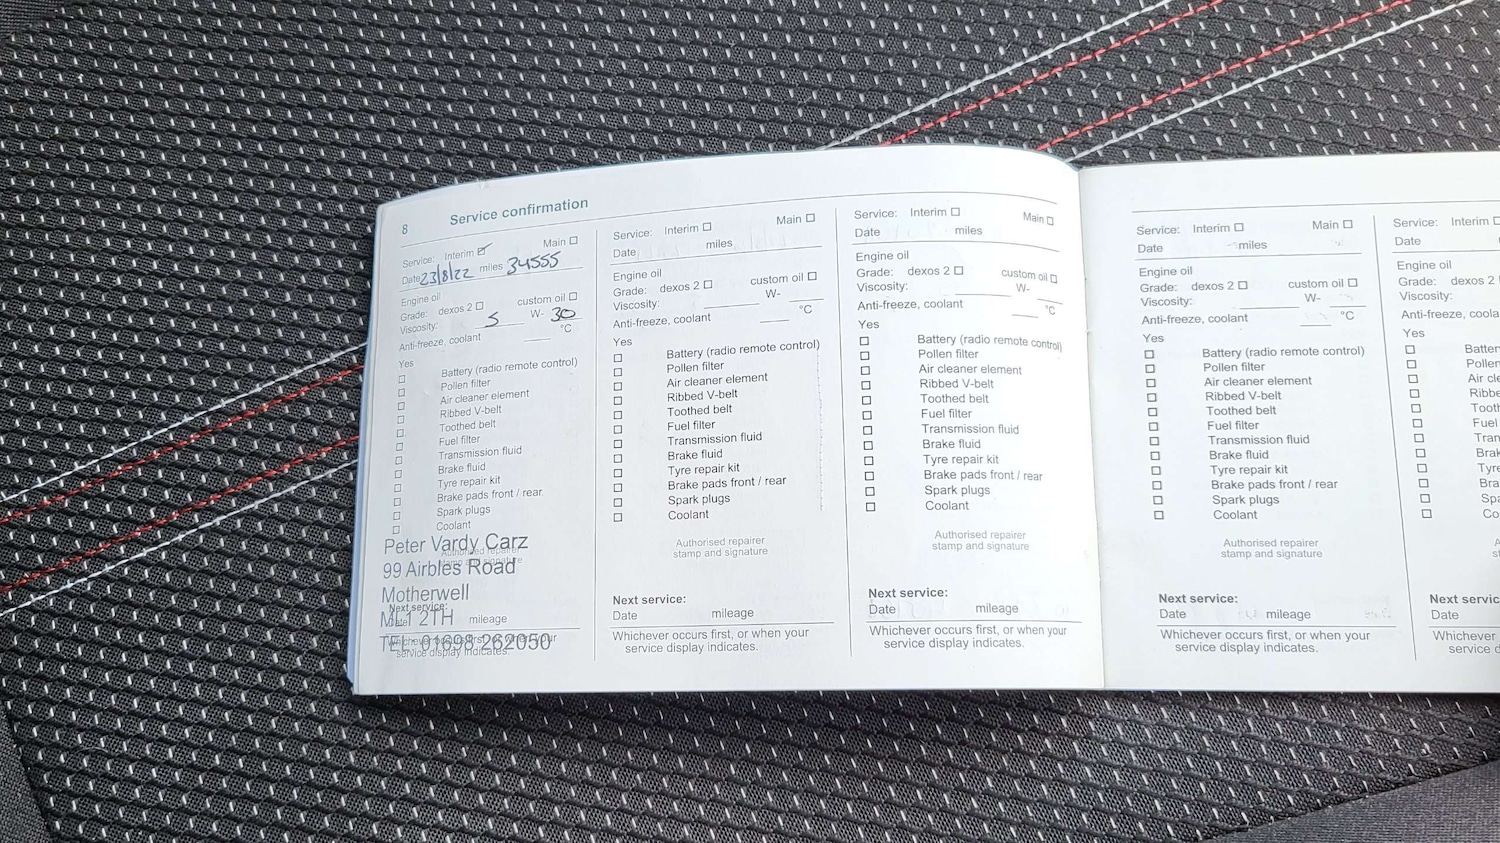 8 Service confirmation
Service: Interim ☑ Main ☐
Date 23/8/22 miles 34555
Engine oil
Grade: dexos 2 ☐ custom oil ☐
Viscosity: 5 W- 30
Anti-freeze, coolant ____ °C
Yes
☐ Battery (radio remote control)
☐ Pollen filter
☐ Air cleaner element
☐ Ribbed V-belt
☐ Toothed belt
☐ Fuel filter
☐ Transmission fluid
☐ Brake fluid
☐ Tyre repair kit
☐ Brake pads front / rear
☐ Spark plugs
☐ Coolant
Authorised repairer
stamp and signature
Peter Vardy Carz
99 Airbles Road
Motherwell
ML1 2TH
TEL: 01698 262050
Next service:
Date mileage
Whichever occurs first, or when your
service display indicates.
Service: Interim ☐ Main ☐
Date miles
Engine oil
Grade: dexos 2 ☐ custom oil ☐
Viscosity: ____ W- ____
Anti-freeze, coolant ____ °C
Yes
☐ Battery (radio remote control)
☐ Pollen filter
☐ Air cleaner element
☐ Ribbed V-belt
☐ Toothed belt
☐ Fuel filter
☐ Transmission fluid
☐ Brake fluid
☐ Tyre repair kit
☐ Brake pads front / rear
☐ Spark plugs
☐ Coolant
Authorised repairer
stamp and signature
Next service:
Date mileage
Whichever occurs first, or when your
service display indicates.
Service: Interim ☐ Main ☐
Date miles
Engine oil
Grade: dexos 2 ☐ custom oil ☐
Viscosity: ____ W- ____
Anti-freeze, coolant ____ °C
Yes
☐ Battery (radio remote control)
☐ Pollen filter
☐ Air cleaner element
☐ Ribbed V-belt
☐ Toothed belt
☐ Fuel filter
☐ Transmission fluid
☐ Brake fluid
☐ Tyre repair kit
☐ Brake pads front / rear
☐ Spark plugs
☐ Coolant
Authorised repairer
stamp and signature
Next service:
Date mileage
Whichever occurs first, or when your
service display indicates.
Service: Interim ☐ Main ☐
Date miles
Engine oil
Grade: dexos 2 ☐ custom oil ☐
Viscosity: ____ W- ____
Anti-freeze, coolant ____ °C
Yes
☐ Battery (radio remote control)
☐ Pollen filter
☐ Air cleaner element
☐ Ribbed V-belt
☐ Toothed belt
☐ Fuel filter
☐ Transmission fluid
☐ Brake fluid
☐ Tyre repair kit
☐ Brake pads front / rear
☐ Spark plugs
☐ Coolant
Authorised repairer
stamp and signature
Next service:
Date mileage
Whichever occurs first, or when your
service display indicates.
Service: Interim ☐
Date
Engine oil
Grade: dexos 2
Viscosity:
Anti-freeze, coola
Yes
☐ Batter
☐ Pollen
☐ Air cle
☐ Ribbe
☐ Tooth
☐ Fuel
☐ Tran
☐ Brak
☐ Tyre
☐ Bra
☐ Spa
☐ Co
Next servic
Date
Whichever
service d